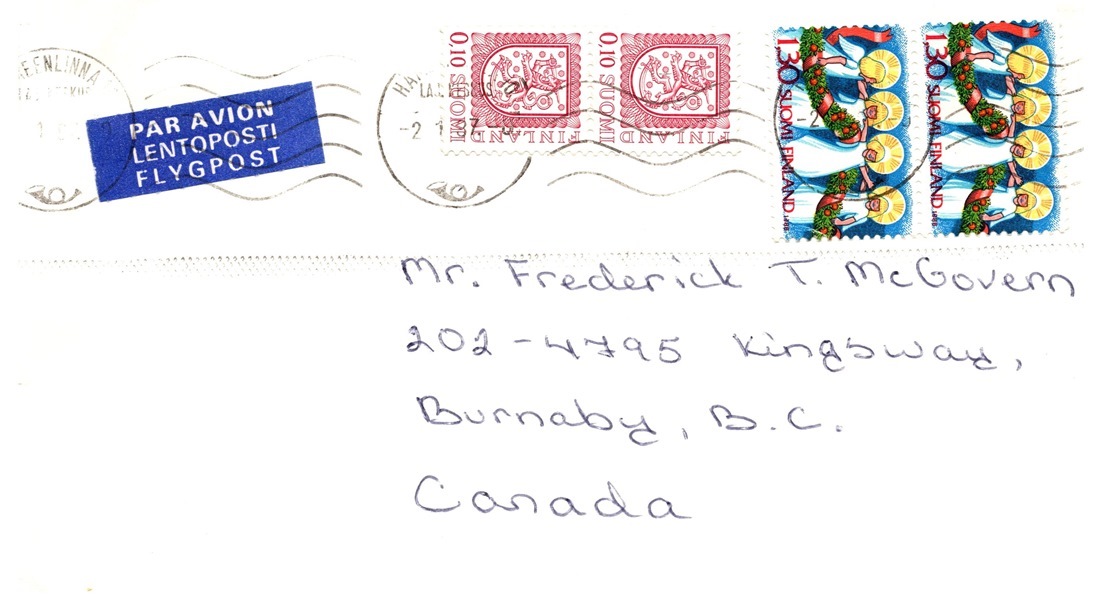 EENLINNA
PAR AVION
LENTOPOST!
FLYGPOST
LAJ
-2.1
0.10 SUOMI
FINLAND
0.10 SUOMI
FINLAND
1.30 SUOMI FINLAND
1.30 SUOMI FINLAND
Mr. Frederick T. McGovern
202-4795 Kingsway,
Burnaby, B.C.
Canada